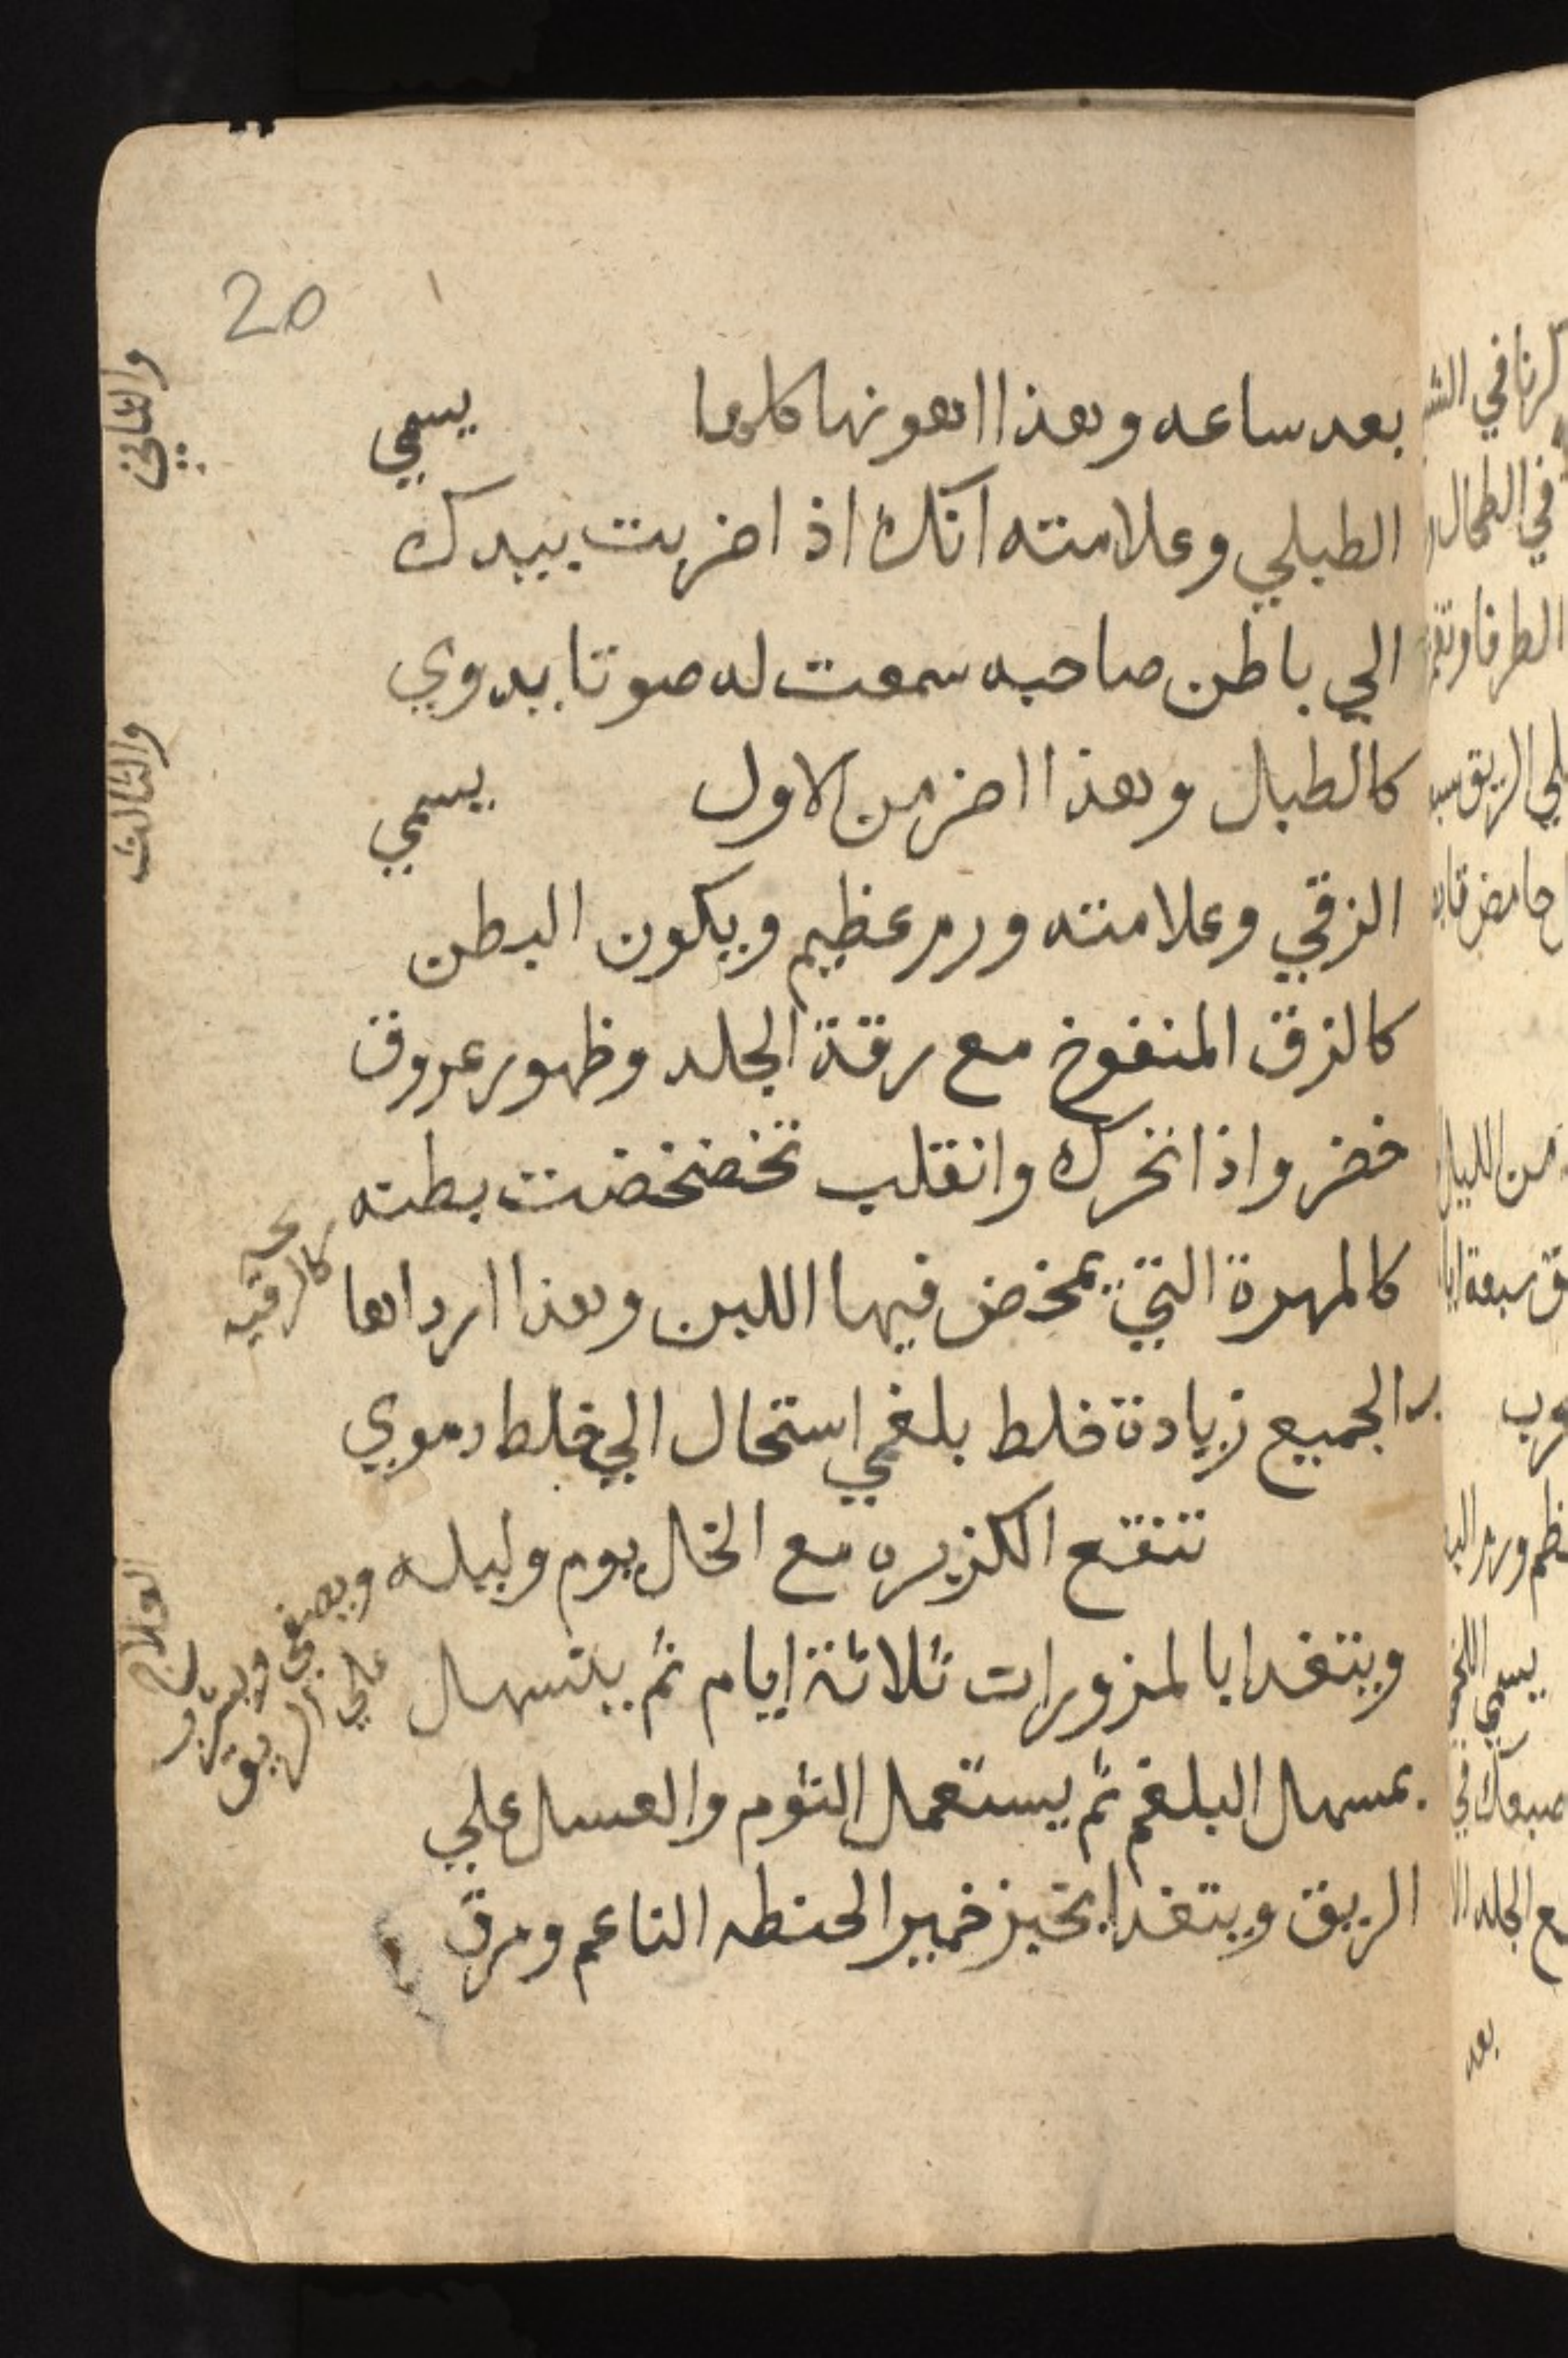 20
بعد ساعه وهذا اهونها كلها يسمي
والثاني
الطبلي وعلامته انك اذا ضربت بيدك
الي باطن صاحبه سمعت له صوتا بدوي
كالطبال وهذا اضر من الاول يسمي
والثالث
الزقي وعلامته ورم عظيم ويكون البطن
كالزق المنفوخ مع رقة الجلد وظهور عروق
خضر واذا تحرك وانقلب تخضخضت بطنه
كالمهرة التي يمخض فيها اللبن وهذا ارداها
الجميع زيادة خلط بلغمي استحال الي خلط دموي
تنقع الكزبره مع الخال يوم وليله ويصفي ويشرب
علي الريق
العلاج
ويتغدا بالمزورات ثلاثة ايام ثم يتسهال
بمسهال البلغم ثم يستعمل الثوم والعسل علي
الريق ويتغدا بخبز خمير الحنطه الناعم ومرق
بعد